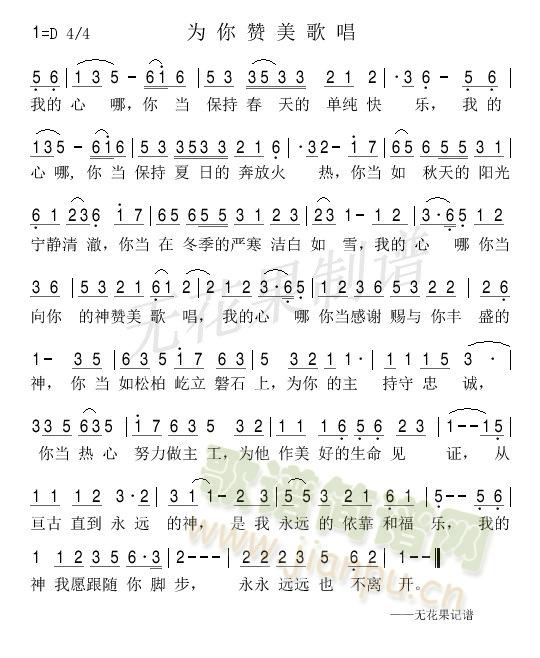 1=D 4/4 为你赞美歌唱
5 6 | 1 3 5 - 6 1 6 | 5 3 3 5 3 3 2 1 2 | · 3 6 - 5 6 |
我的 心 哪,你 当 保持 春 天的 单纯 快 乐, 我 的
1 3 5 - 6 1 6 | 5 3 3 5 3 3 2 1 6 | · 3 2 - 1 7 | 6 5 6 5 5 3 1 |
心 哪, 你 当 保持 夏 日的 奔放火 热,你当 如 秋天的 阳光
6 1 2 3 6 1 7 | 6 5 6 5 5 3 1 2 | 2 3 1 - 1 2 | 3 · 6 5 1 2 |
宁静清 澈,你当 在 冬季的严寒 洁白 如 雪,我的 心 哪 你当
3 6 5 3 5 2 1 6 1 | 2 - 1 2 | 3 · 6 5 1 2 | 3 6 1 6 5 3 2 2 2 5 |
向你 的神赞美 歌 唱, 我的心 哪 你当感谢 赐与 你丰 盛的
1 - 3 5 | 6 3 5 1 7 6 3 | 5 - 3 2 1 1 | 1 1 1 5 3 · | ·
神, 你 当 如松柏 屹立 磐石 上,为你 的主 持守 忠 诚,
3 3 5 6 3 6 | 1 7 6 3 5 3 | 2 1 2 1 1 5 6 5 6 2 3 | 1 - - 1 5 |
你当 热心 努力做主 工,为他 作美 好的生命 见 证, 从
1 1 1 2 3 · 2 | 3 1 1 - 2 3 | 5 5 3 2 1 6 6 2 1 | 5 - - 5 6 |
亘古 直到 永 远 的神, 是 我 永远的 依靠 和福 乐, 我的
1 1 2 3 5 6 · 3 | 2 - - - | 2 2 2 3 5 6 2 | 1 - - - ‖
神 我愿跟随 你 脚 步, 永永 远远 也 不离 开。
——无花果记谱
无花果制谱
歌谱简谱网
www.jianpu.cn